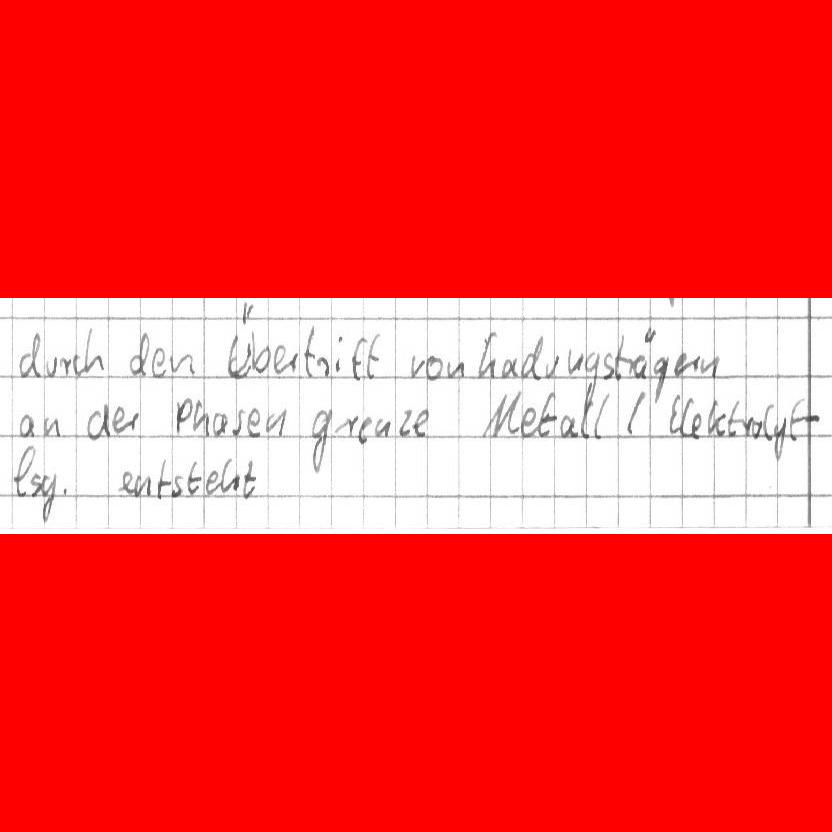 durch den Übertritt von Ladungsträgern
an der Phasengrenze Metall / Elektrolyt-
lsg. entsteht